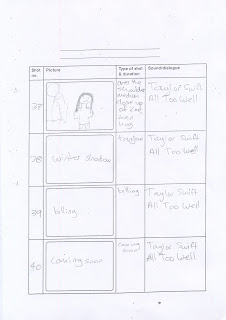 Shot no.
Picture
Type of shot & duration
Sound/dialogue
over the
shoulder
medium
close up
of
Taylor Swift
All Too Well
Winter shadow
Taylor Swift
All Too Well
39
billing
billing
Taylor Swift
All Too Well
40
coming soon
coming
soon
Taylor Swift
All Too Well